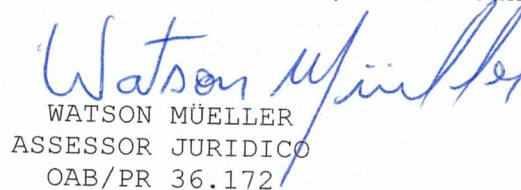 Watson Müeller
WATSON MÜELLER
ASSESSOR JURIDICO
OAB/PR 36.172